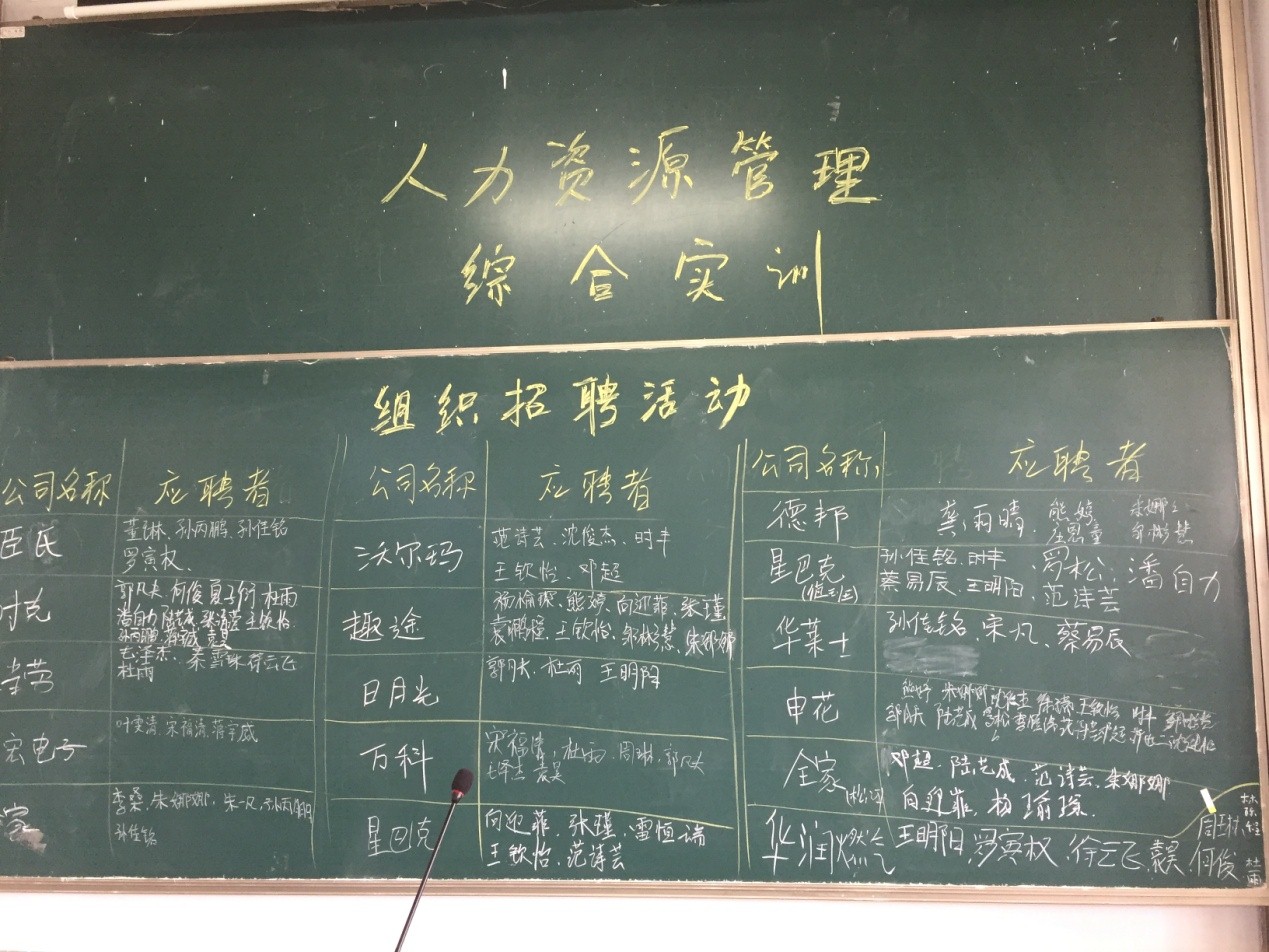 人力资源管理
综合实训
组织招聘活动
公司名称 应聘者
臣氏 董琳、孙丙鹏、孙佳铭
罗寅权、
时克 郭凡夫 何俊 夏子衍 杜雨
潘自力 陆芸成 张瑾 王钦怡
毛泽杰、秦雪琳 徐云飞
杜雨
宏电子 叶雯清、宋福清、蒋宇威
李桑、朱娜娜、朱一凡、孙丙鹏
孙佳铭
公司名称 应聘者
沃尔玛 范诗芸、沈俊杰、时丰
王钦怡、邓超
趣途 杨榆琛、熊婷、向迎菲、张瑾
袁鹏程、王钦怡、邹彬慧、朱娜娜
日月光 郭凡夫、杜雨 王明阳
万科 宋福清、杜雨、周琳、郭凡夫
毛泽杰 袁昊
星巴克 向迎菲、张瑾、雷恒瑞
王钦怡、范诗芸
公司名称 应聘者
德邦 龚雨晴 熊婷 朱娜娜
庄思童 邹彬慧
星巴克 孙佳铭、时丰 罗松、潘自力
蔡易辰、王明阳、范诗芸
华莱士 孙佳铭、宋凡、蔡易辰
申花 熊婷 朱娜娜 沈俊杰 王钦怡 时丰
陆芸成 罗松 范诗芸
全家(松江) 邓超、陆芸成、范诗芸、朱娜娜
向迎菲、杨瑜琛、
华润燃气 王明阳、罗寅权、徐云飞、袁昊、何俊
周琳
杜雨